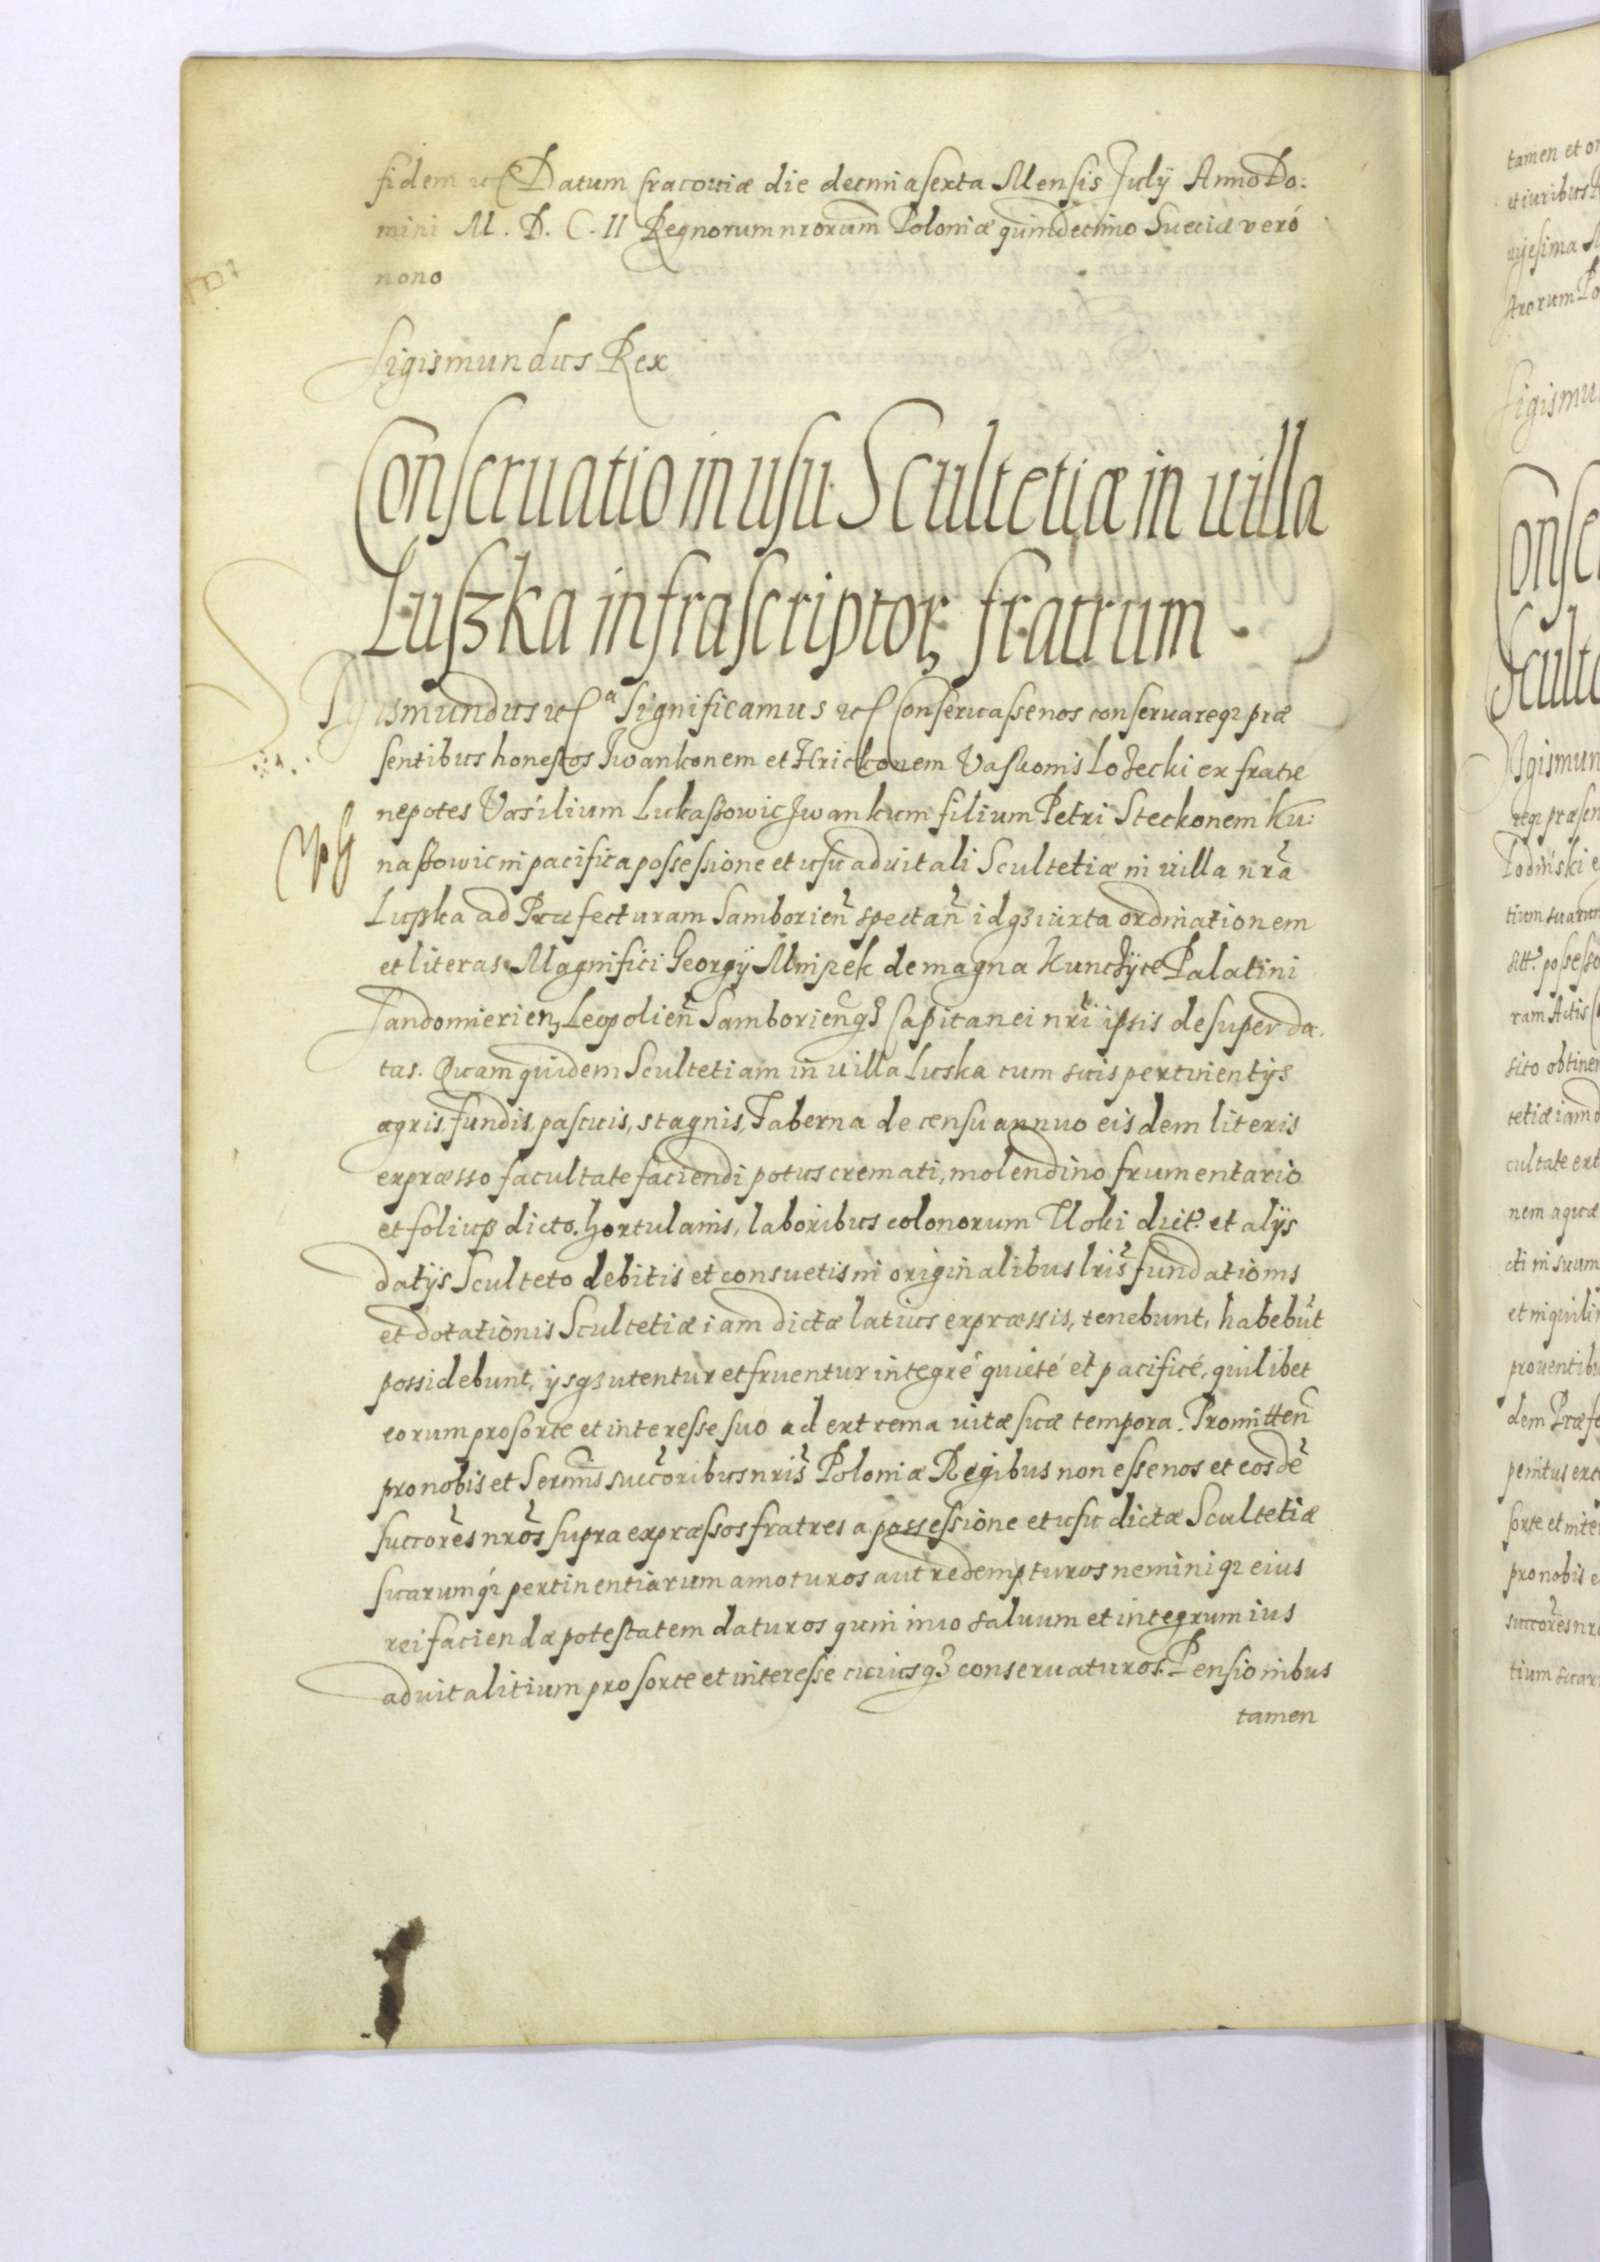 fidem etc Datum Cracouiæ die decimasexta Mensis July Anno Do:
mini M. D. C. II Regnorum nrorum Poloniæ quindecimo Sueciæ veró
nono
Sigismundus Rex
Conseruatio in usu Scultetiæ in uilla
Luszka infrascriptor. fratrum
Sigismundus etc a Significamus etc Conseruasse nos conseruareq3 præ
sentibus honestos Jwankonem et Hrickonem Vaskonis Lozecki ex fratre
nepotes Vasilium Lukaszowic Jwankum filium Petri Steckonem Ku:
naszowic in pacifica possessione et usu aduitali Scultetiæ in uilla nrã
Luszka ad Præfecturam Samborień spectań idq3 iuxta ordinationem
et literas Magnifici Georgÿ Mnisek de magna Kunczÿce Palatini
Sandomierien, Leopolień Samborienq3 Capitanei nri ipsis desuper da-
tas. Quam quidem Scultetiam in uilla Luska cum suis pertinentÿs
agris, fundis, pascuis, stagnis, Taberna de censu annuo eisdem literis
expræsso facultate faciendi potus cremati, molendino frumentario
et folusz dicto. hortulanis, laboribus colonorum Tloki dict. et alÿs
datÿs Sculteto debitis et consuetis in originalibus lris fundationis
et dotationis Scultetiæ iam dictæ latius expræssis, tenebunt, habebũt
possidebunt, ÿsq3 utentur et fruentur integré quieté et pacificé, quilibet
eorum pro sorte et interesse suo ad extrema uitæ suæ tempora. Promitteñ
pro nobis et Sermis succoribus nris Poloniæ Regibus non esse nos et eosdẽ
succores nros supra expræssos fratres a possessione et usu dictæ Scultetiæ
suarumq3 pertinentiarum amoturos aut redempturos neminiq3 eius
rei faciendæ potestatem daturos quin imo saluum et integrum ius
aduitalitium pro sorte et interesse cuiusq3 conseruaturos. Pensionibus
tamen